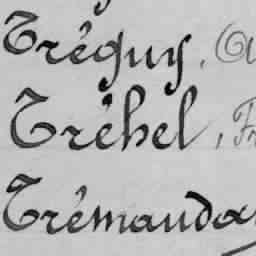 Tréguy,
Tréhel,
Trémauda